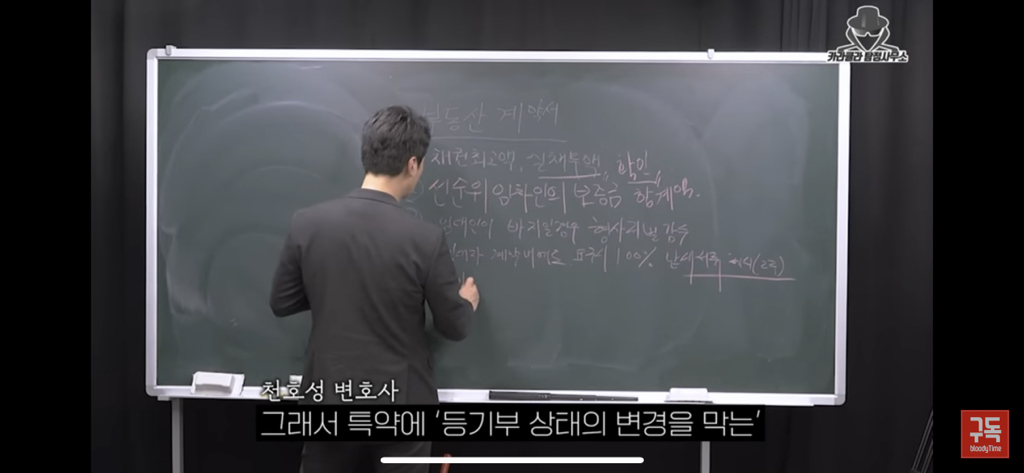 카라큘라 탐정사무소
부동산 계약서
채권최고액, 실채무액, 확인
선순위 임차인의 보증금 합계액.
임대인이 바지일경우 형사처벌 감수
100%
천호성 변호사
그래서 특약에 ‘등기부 상태의 변경을 막는’
구독
bloodyTime